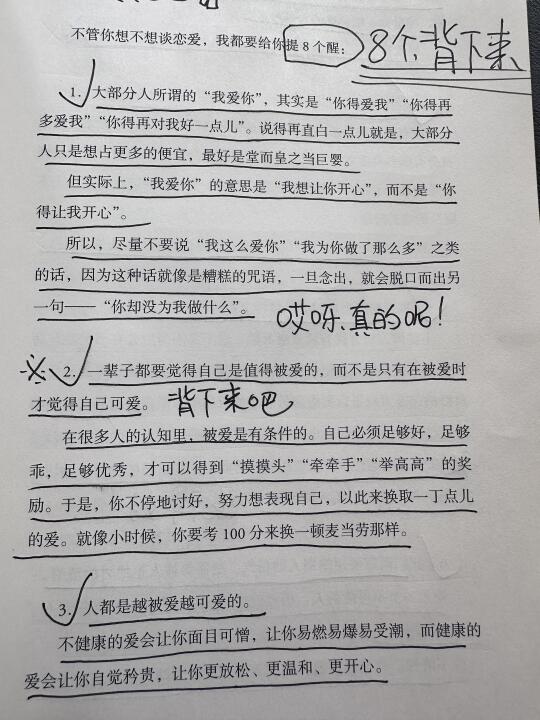 不管你想不想谈恋爱，我都要给你提 8 个醒：
8个，背下来
1. 大部分人所谓的“我爱你”，其实是“你得爱我”“你得再
多爱我”“你得再对我好一点儿”。说得再直白一点儿就是，大部分
人只是想占更多的便宜，最好是堂而皇之当巨婴。
但实际上，“我爱你”的意思是“我想让你开心”，而不是“你
得让我开心”。
所以，尽量不要说“我这么爱你”“我为你做了那么多”之类
的话，因为这种话就像是糟糕的咒语，一旦念出，就会脱口而出另
一句——“你却没为我做什么”。
哎呀、真的呢！
2. 一辈子都要觉得自己是值得被爱的，而不是只有在被爱时
才觉得自己可爱。
背下来吧
在很多人的认知里，被爱是有条件的。自己必须足够好，足够
乖，足够优秀，才可以得到“摸摸头”“牵牵手”“举高高”的奖
励。于是，你不停地讨好，努力想表现自己，以此来换取一丁点儿
的爱。就像小时候，你要考 100 分来换一顿麦当劳那样。
3. 人都是越被爱越可爱的。
不健康的爱会让你面目可憎，让你易燃易爆易受潮，而健康的
爱会让你自觉矜贵，让你更放松、更温和、更开心。